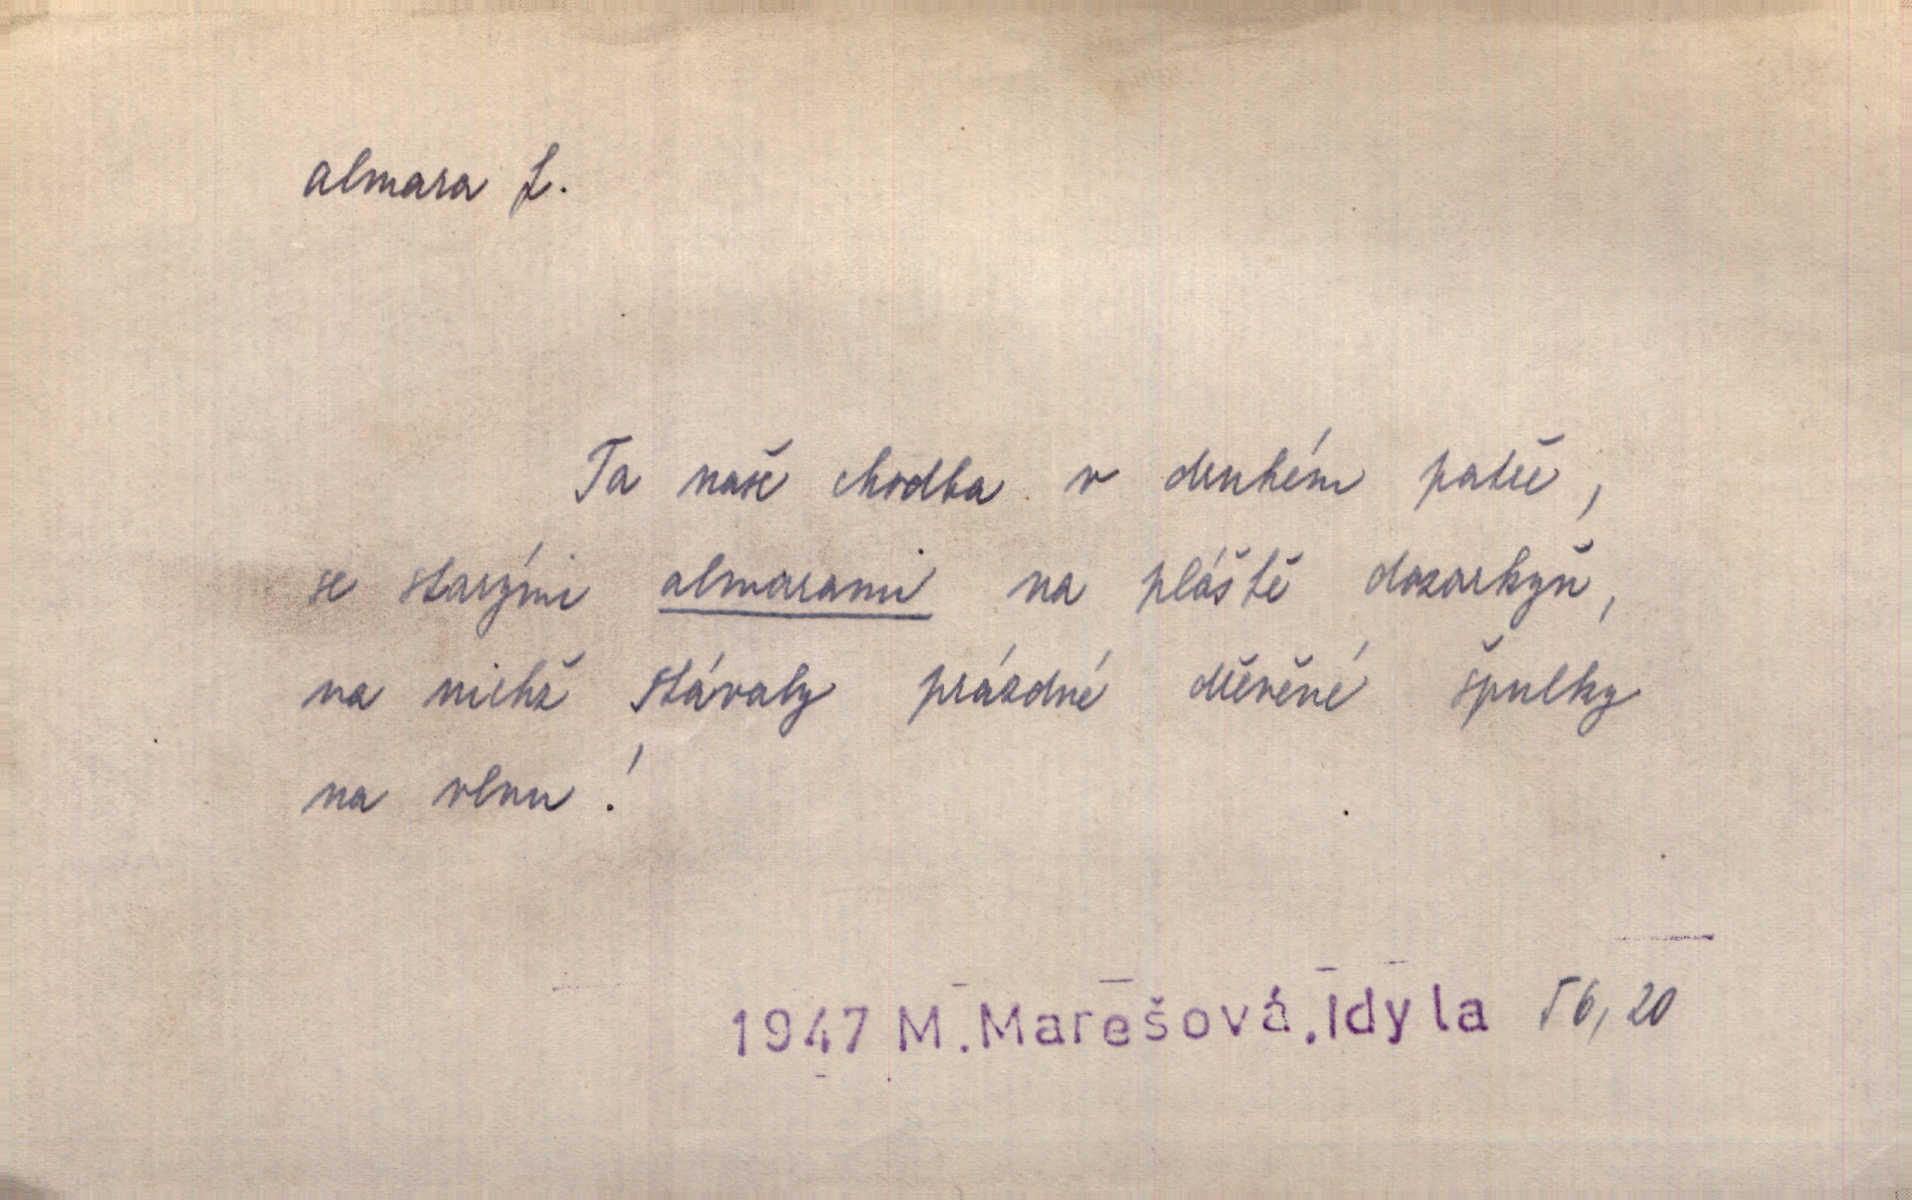 almara f.
Ta naše chodba v druhém patře,
se starými almarami na pláště dozorkyň,
na nichž stávaly prázdné dřevěné špulky
na vlnu!
1947 M.Marešová.Idyla 56,20